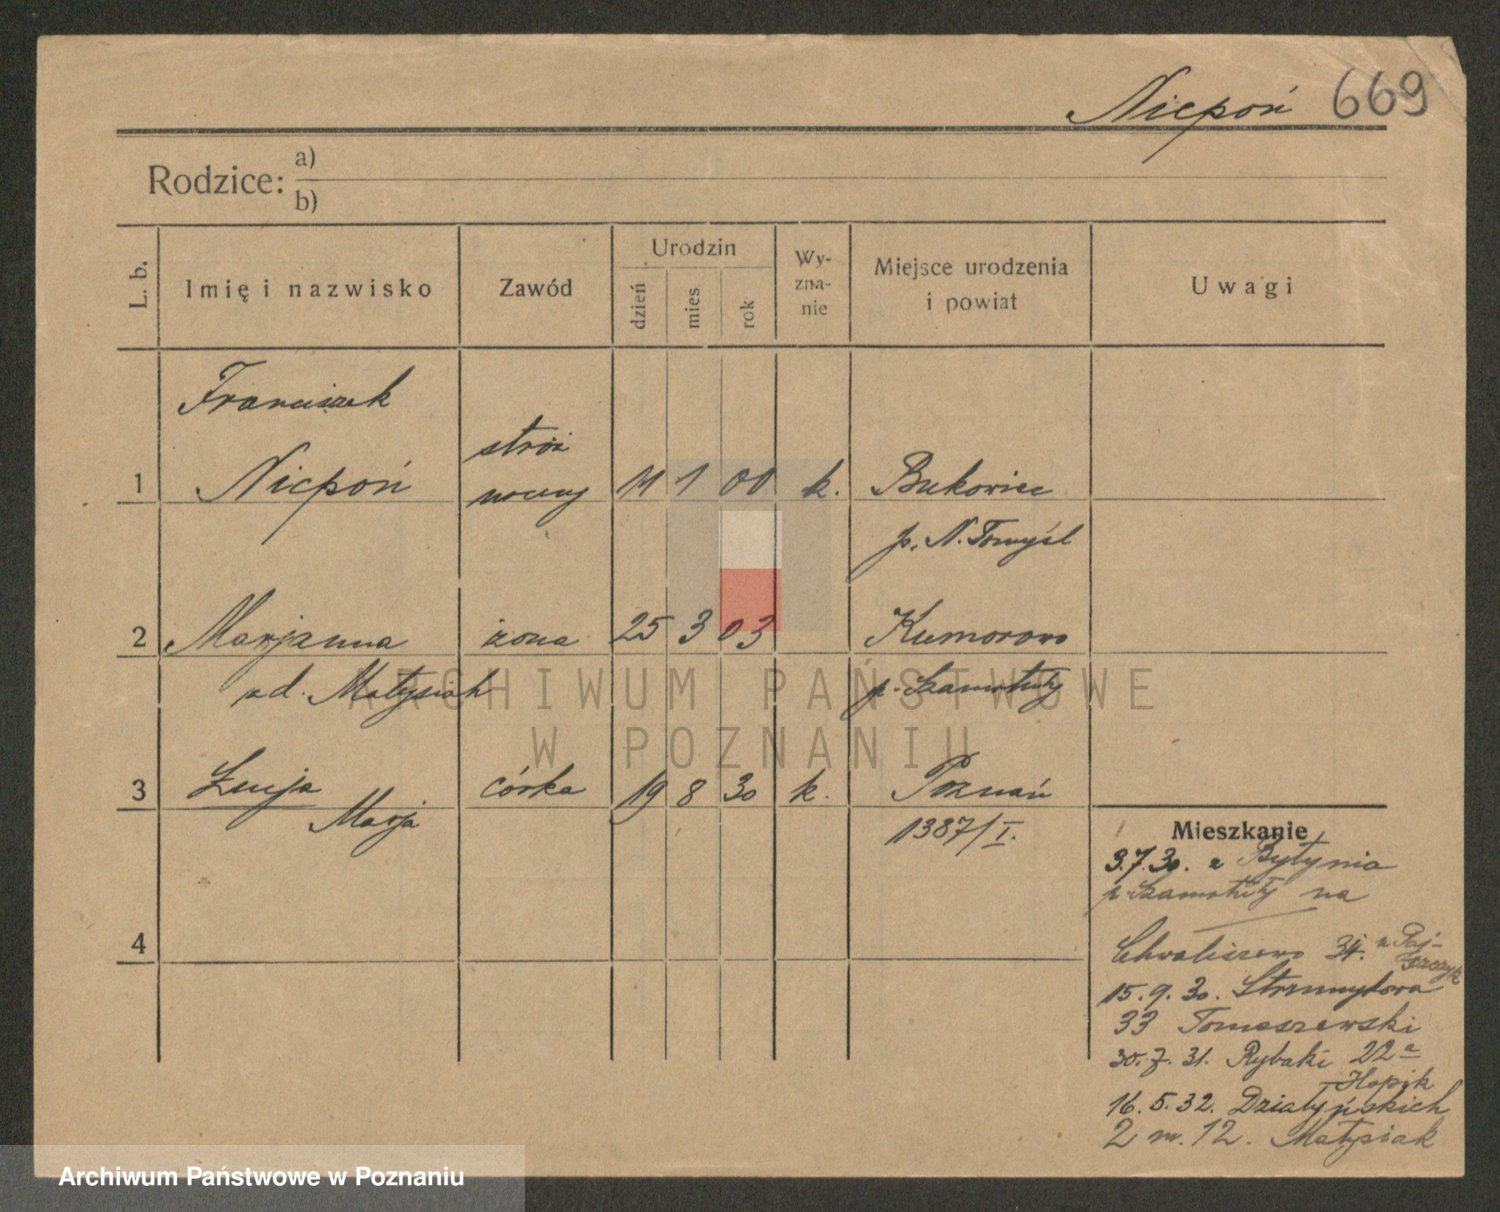 Niepoń 669
Rodzice: a)
b)
L. b. Imię i nazwisko Zawód Urodzin dzień mies rok Wy-zna-nie Miejsce urodzenia i powiat Uwagi
Franciszek
stróż
1 Niepoń nocny 11 1 00 k. Bukowiec
p. N. Tomyśl
2 Marjanna żona 25 3 03 Kumorowo
z d. Matysiak p. Szamotuły
3 Łucja córka 19 8 30 k. Poznań
Marja 1387/I.
4
Mieszkanie
3.7.30. z Bytynia
p. Szamotuły na
Chwaliszewo 34. u
15.9.30. Strumykowa
33 Tomaszewski
30.7.31. Rybaki 22a
Hopik
16.5.32. Działyńskich
2 m. 12. Matysiak
ARCHIWUM PAŃSTWOWE
W POZNANIU
Archiwum Państwowe w Poznaniu